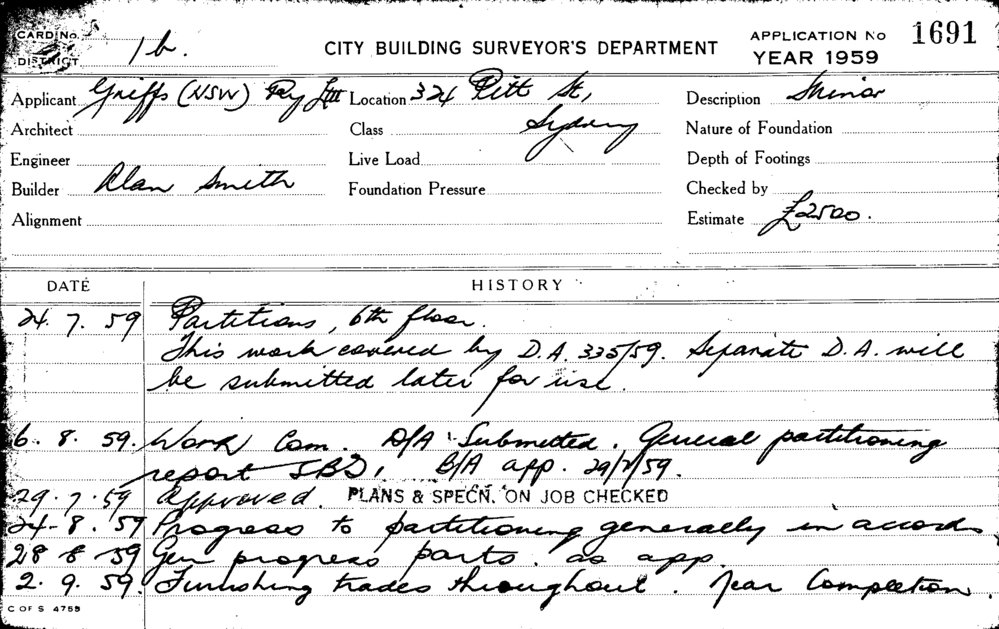 CARD No.
DISTRICT 1b.
CITY BUILDING SURVEYOR'S DEPARTMENT
APPLICATION No 1691
YEAR 1959
Applicant Griffs (NSW) Pty Ltd Location 324 Pitt St, Description Minor
Architect Class Sydney Nature of Foundation
Engineer Live Load Depth of Footings
Builder Alan Smith Foundation Pressure Checked by
Alignment Estimate £2500.
DATE HISTORY
24. 7. 59 Partitions, 6th floor.
This work covered by D.A. 335/59. Separate D.A. will
be submitted later for use.
6. 8. 59. Work Com. D/A Submitted. General partitioning
report B/A app. 29/7/59.
29. 7. 59 Approved. PLANS & SPECN. ON JOB CHECKED
24-8. 59 Progress to partitioning generally in accord.
28 8 59 Gen progress parts. as app.
2. 9. 59. Furnishing trades throughout. Near Completion.
C OF S 4755